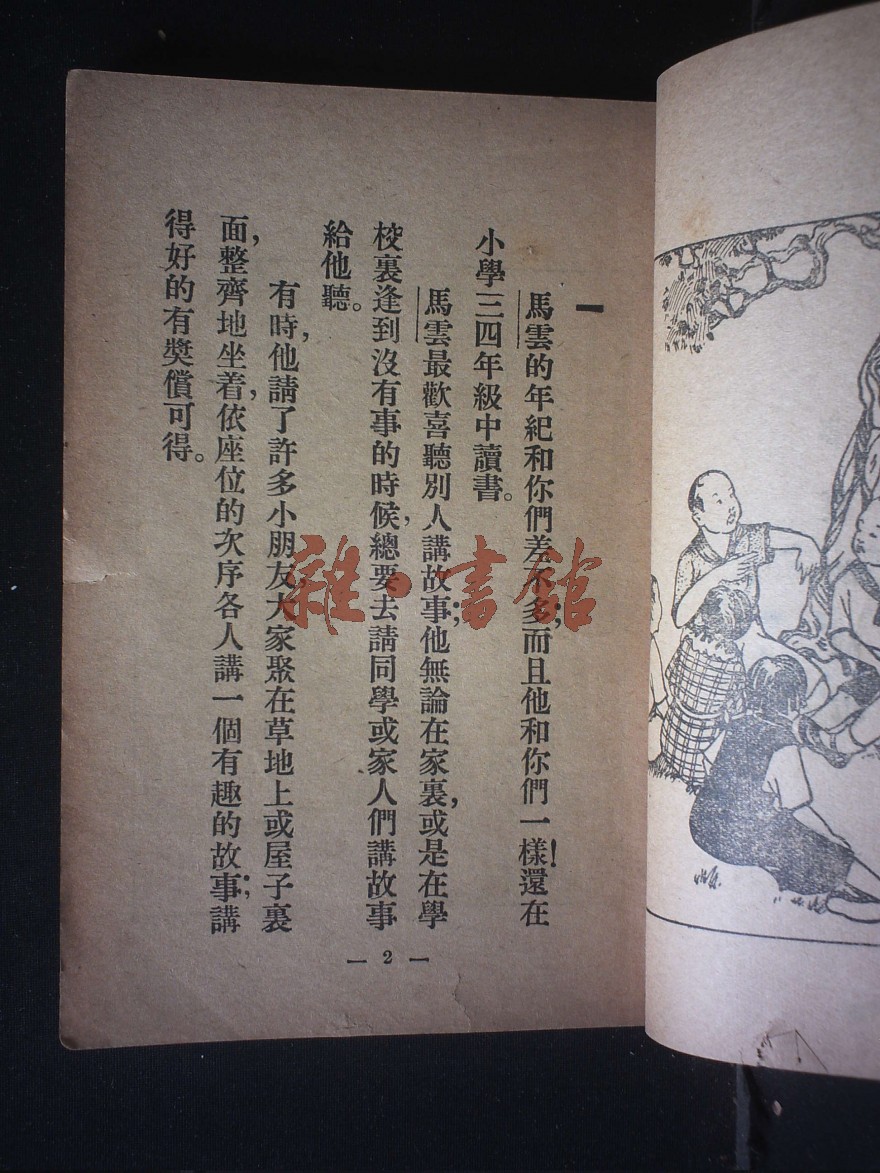 一
馬雲的年紀和你們差不多;而且他和你們一樣!還在
小學三四年級中讀書。
馬雲最歡喜聽別人講故事;他無論在家裏,或是在學
校裏逢到沒有事的時候,總要去請同學或家人們講故事
給他聽。
有時,他請了許多小朋友,大家聚在草地上或屋子裏
面,整齊地坐着,依座位的次序各人講一個有趣的故事;講
得好的有獎償可得。
— 2 —
雜·書館